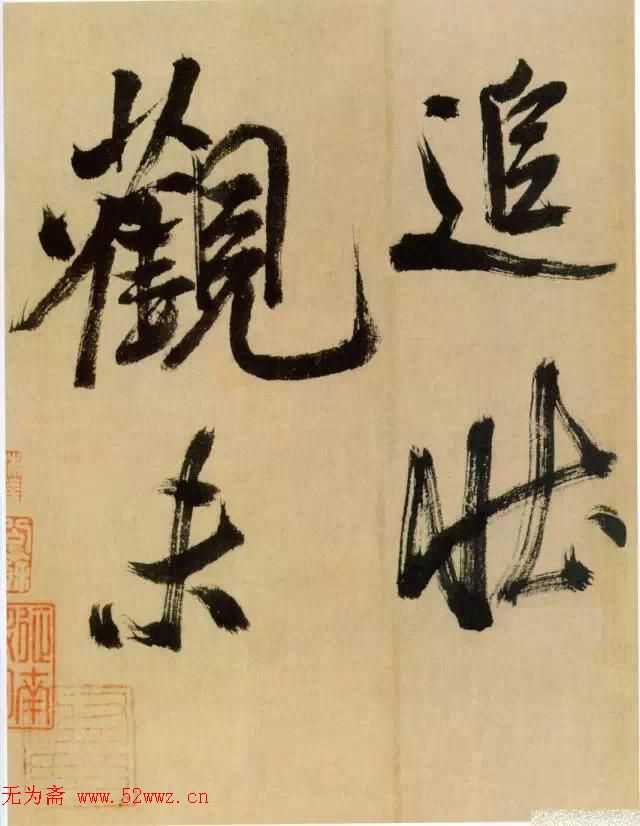 追壯
觀未
无为斋 www.52wwz.cn